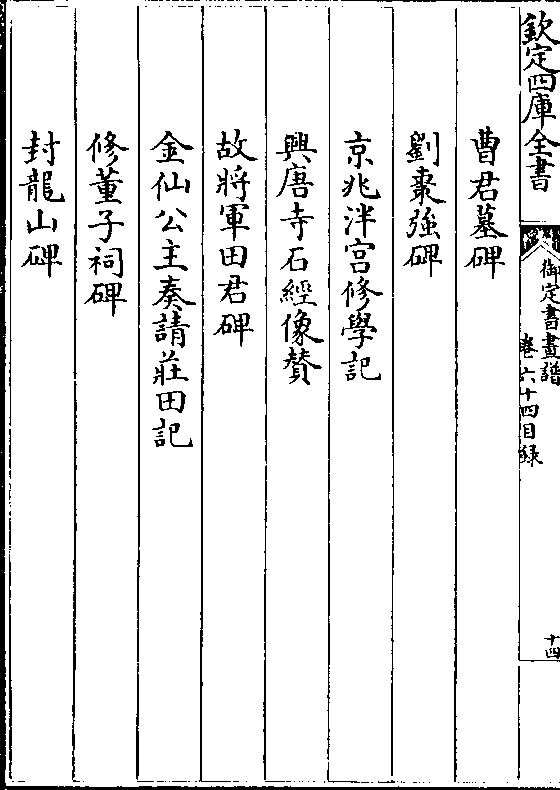 欽定四庫全書
御定書畫譜
卷六十四目録
十四
曹君墓碑
劉棗強碑
京兆泮宮修學記
興唐寺石經像賛
故將軍田君碑
金仙公主奏請莊田記
修董子祠碑
封龍山碑